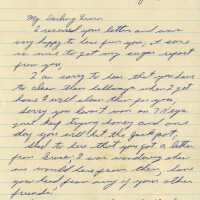 My Darling
I received your letter and was
very happy to hear from you, it sure
is nice to get my sugar report
from you,
I am sorry to hear that you have
to clean them hallways when I get
home I will clean them for you,
Sorry you haven't won on
just keep trying honey and some
day you will hit the jackpot,
Glad to hear that you got a letter
from I was wondering when
we would hear from them, have
you heard from any of your other
friends?